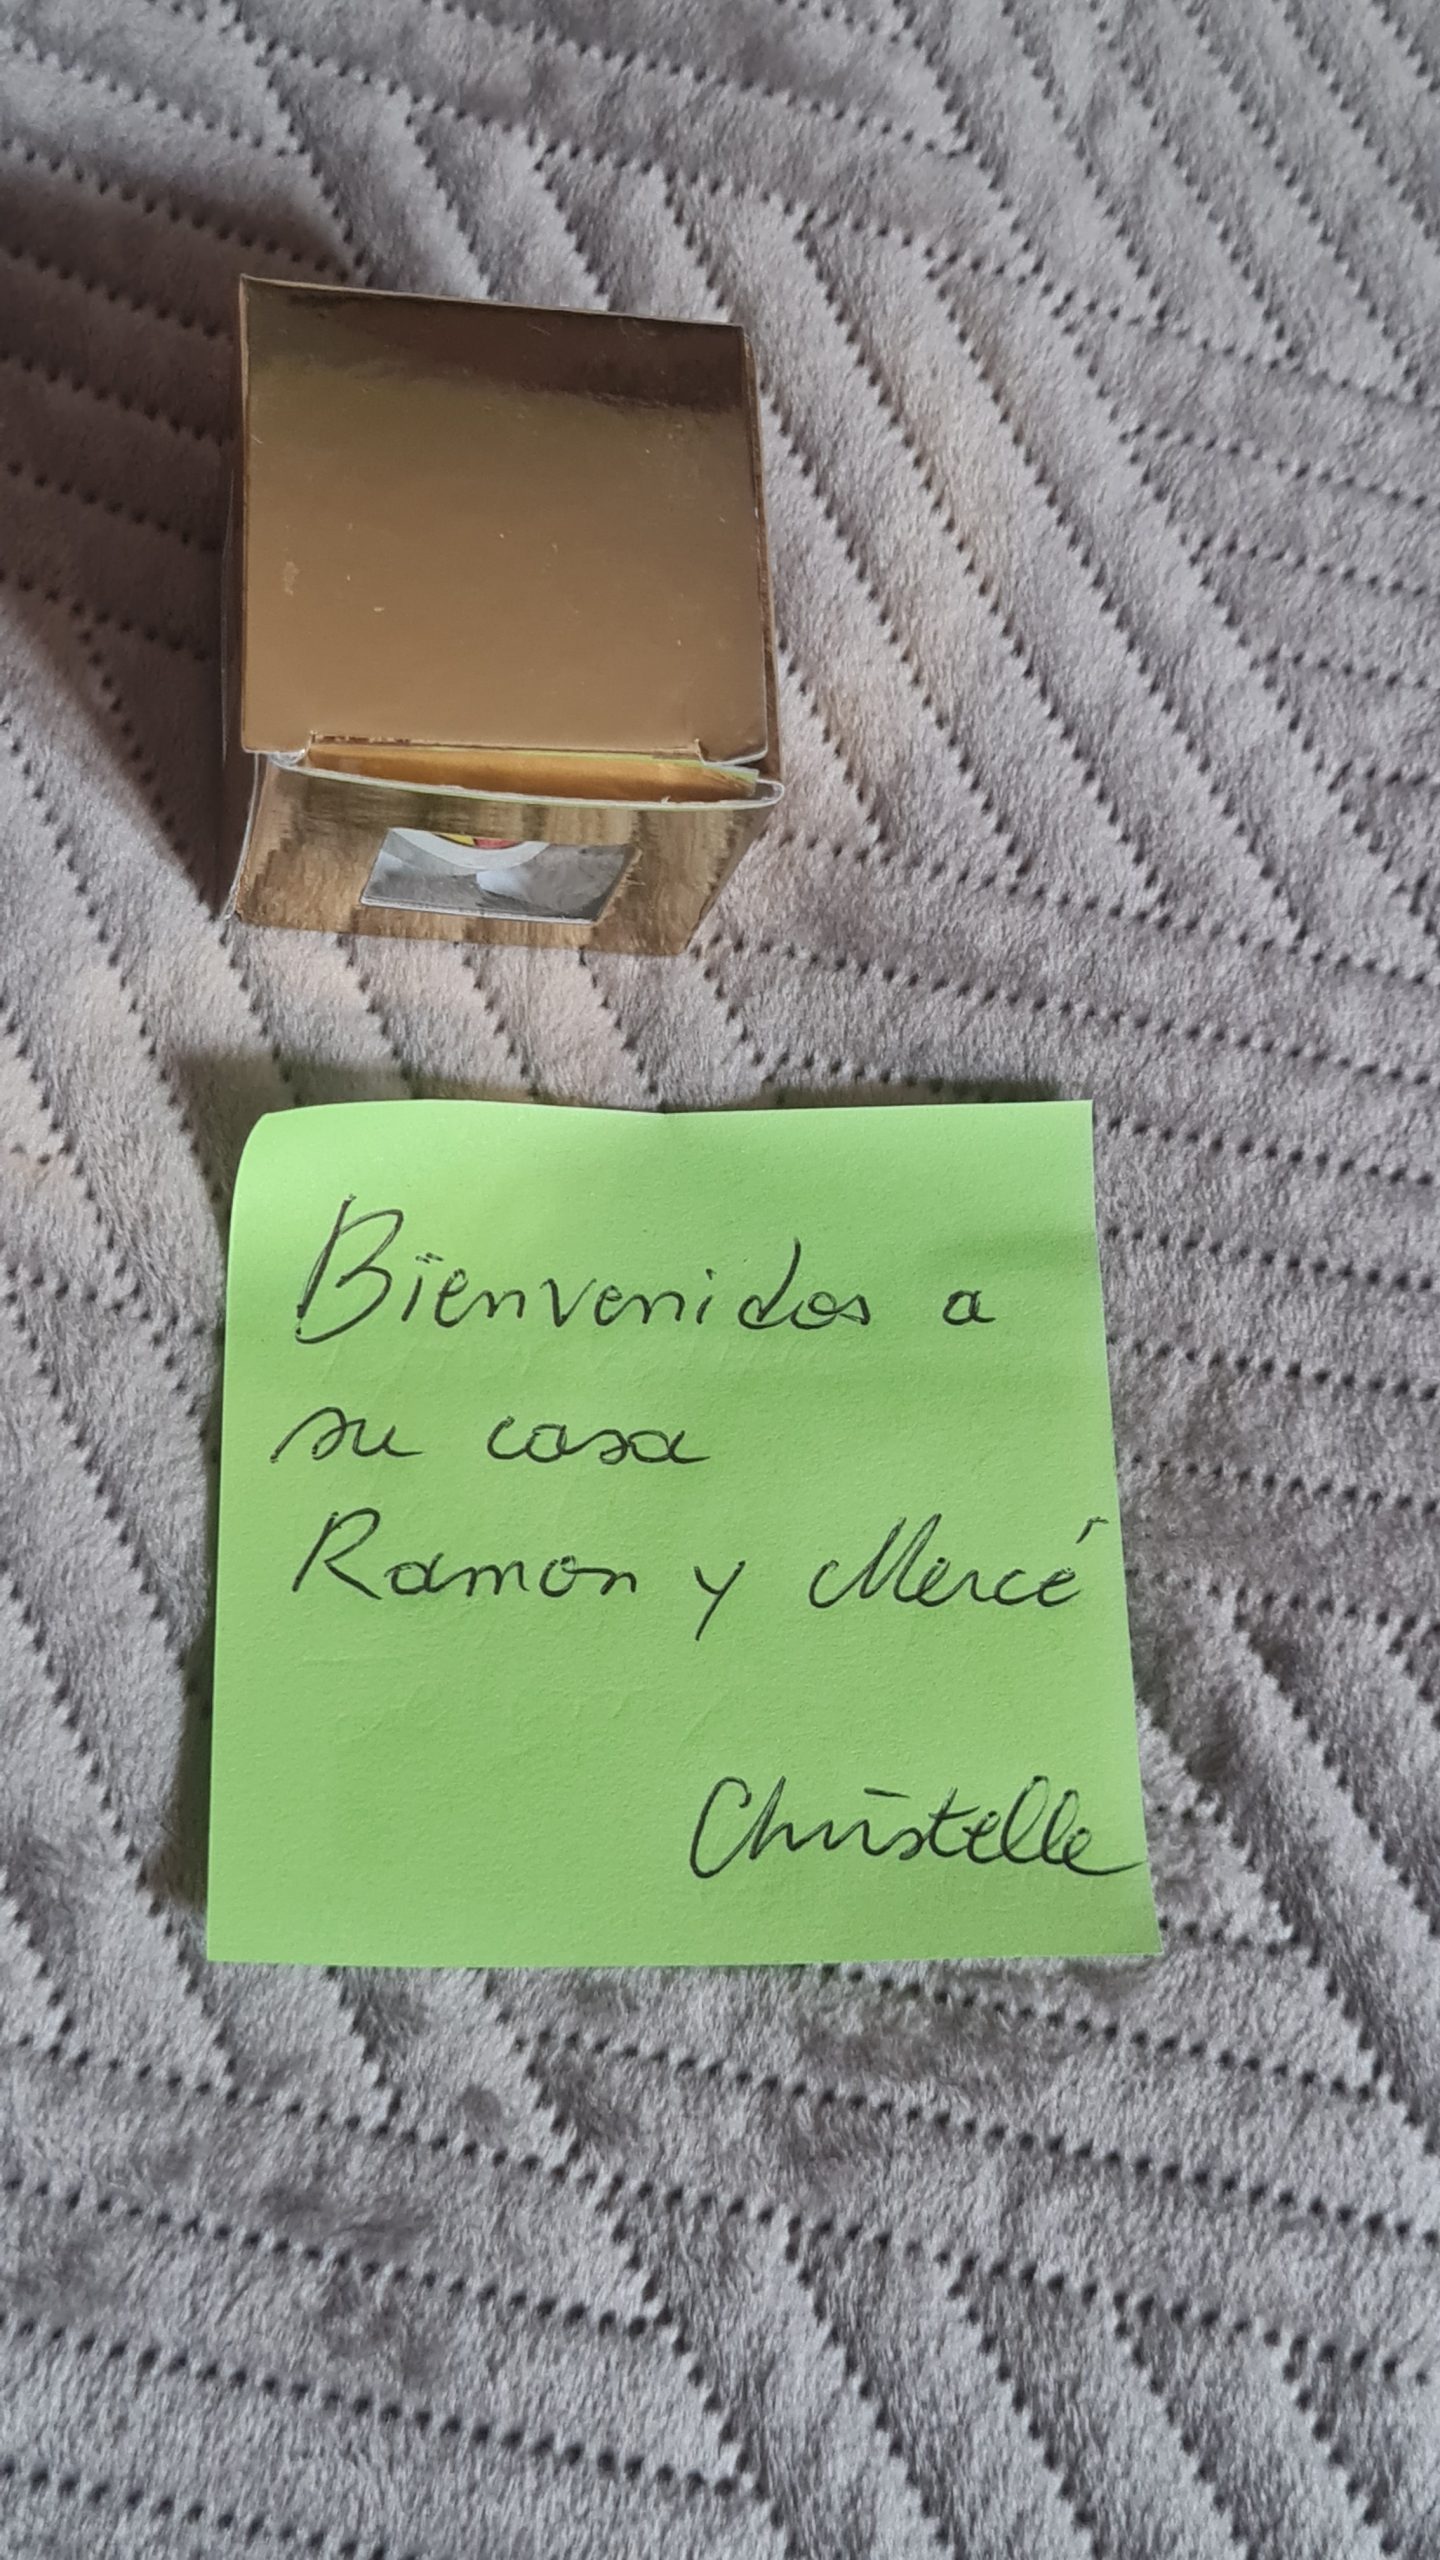 Bienvenidos a
su casa
Ramon y Mercé
Christelle